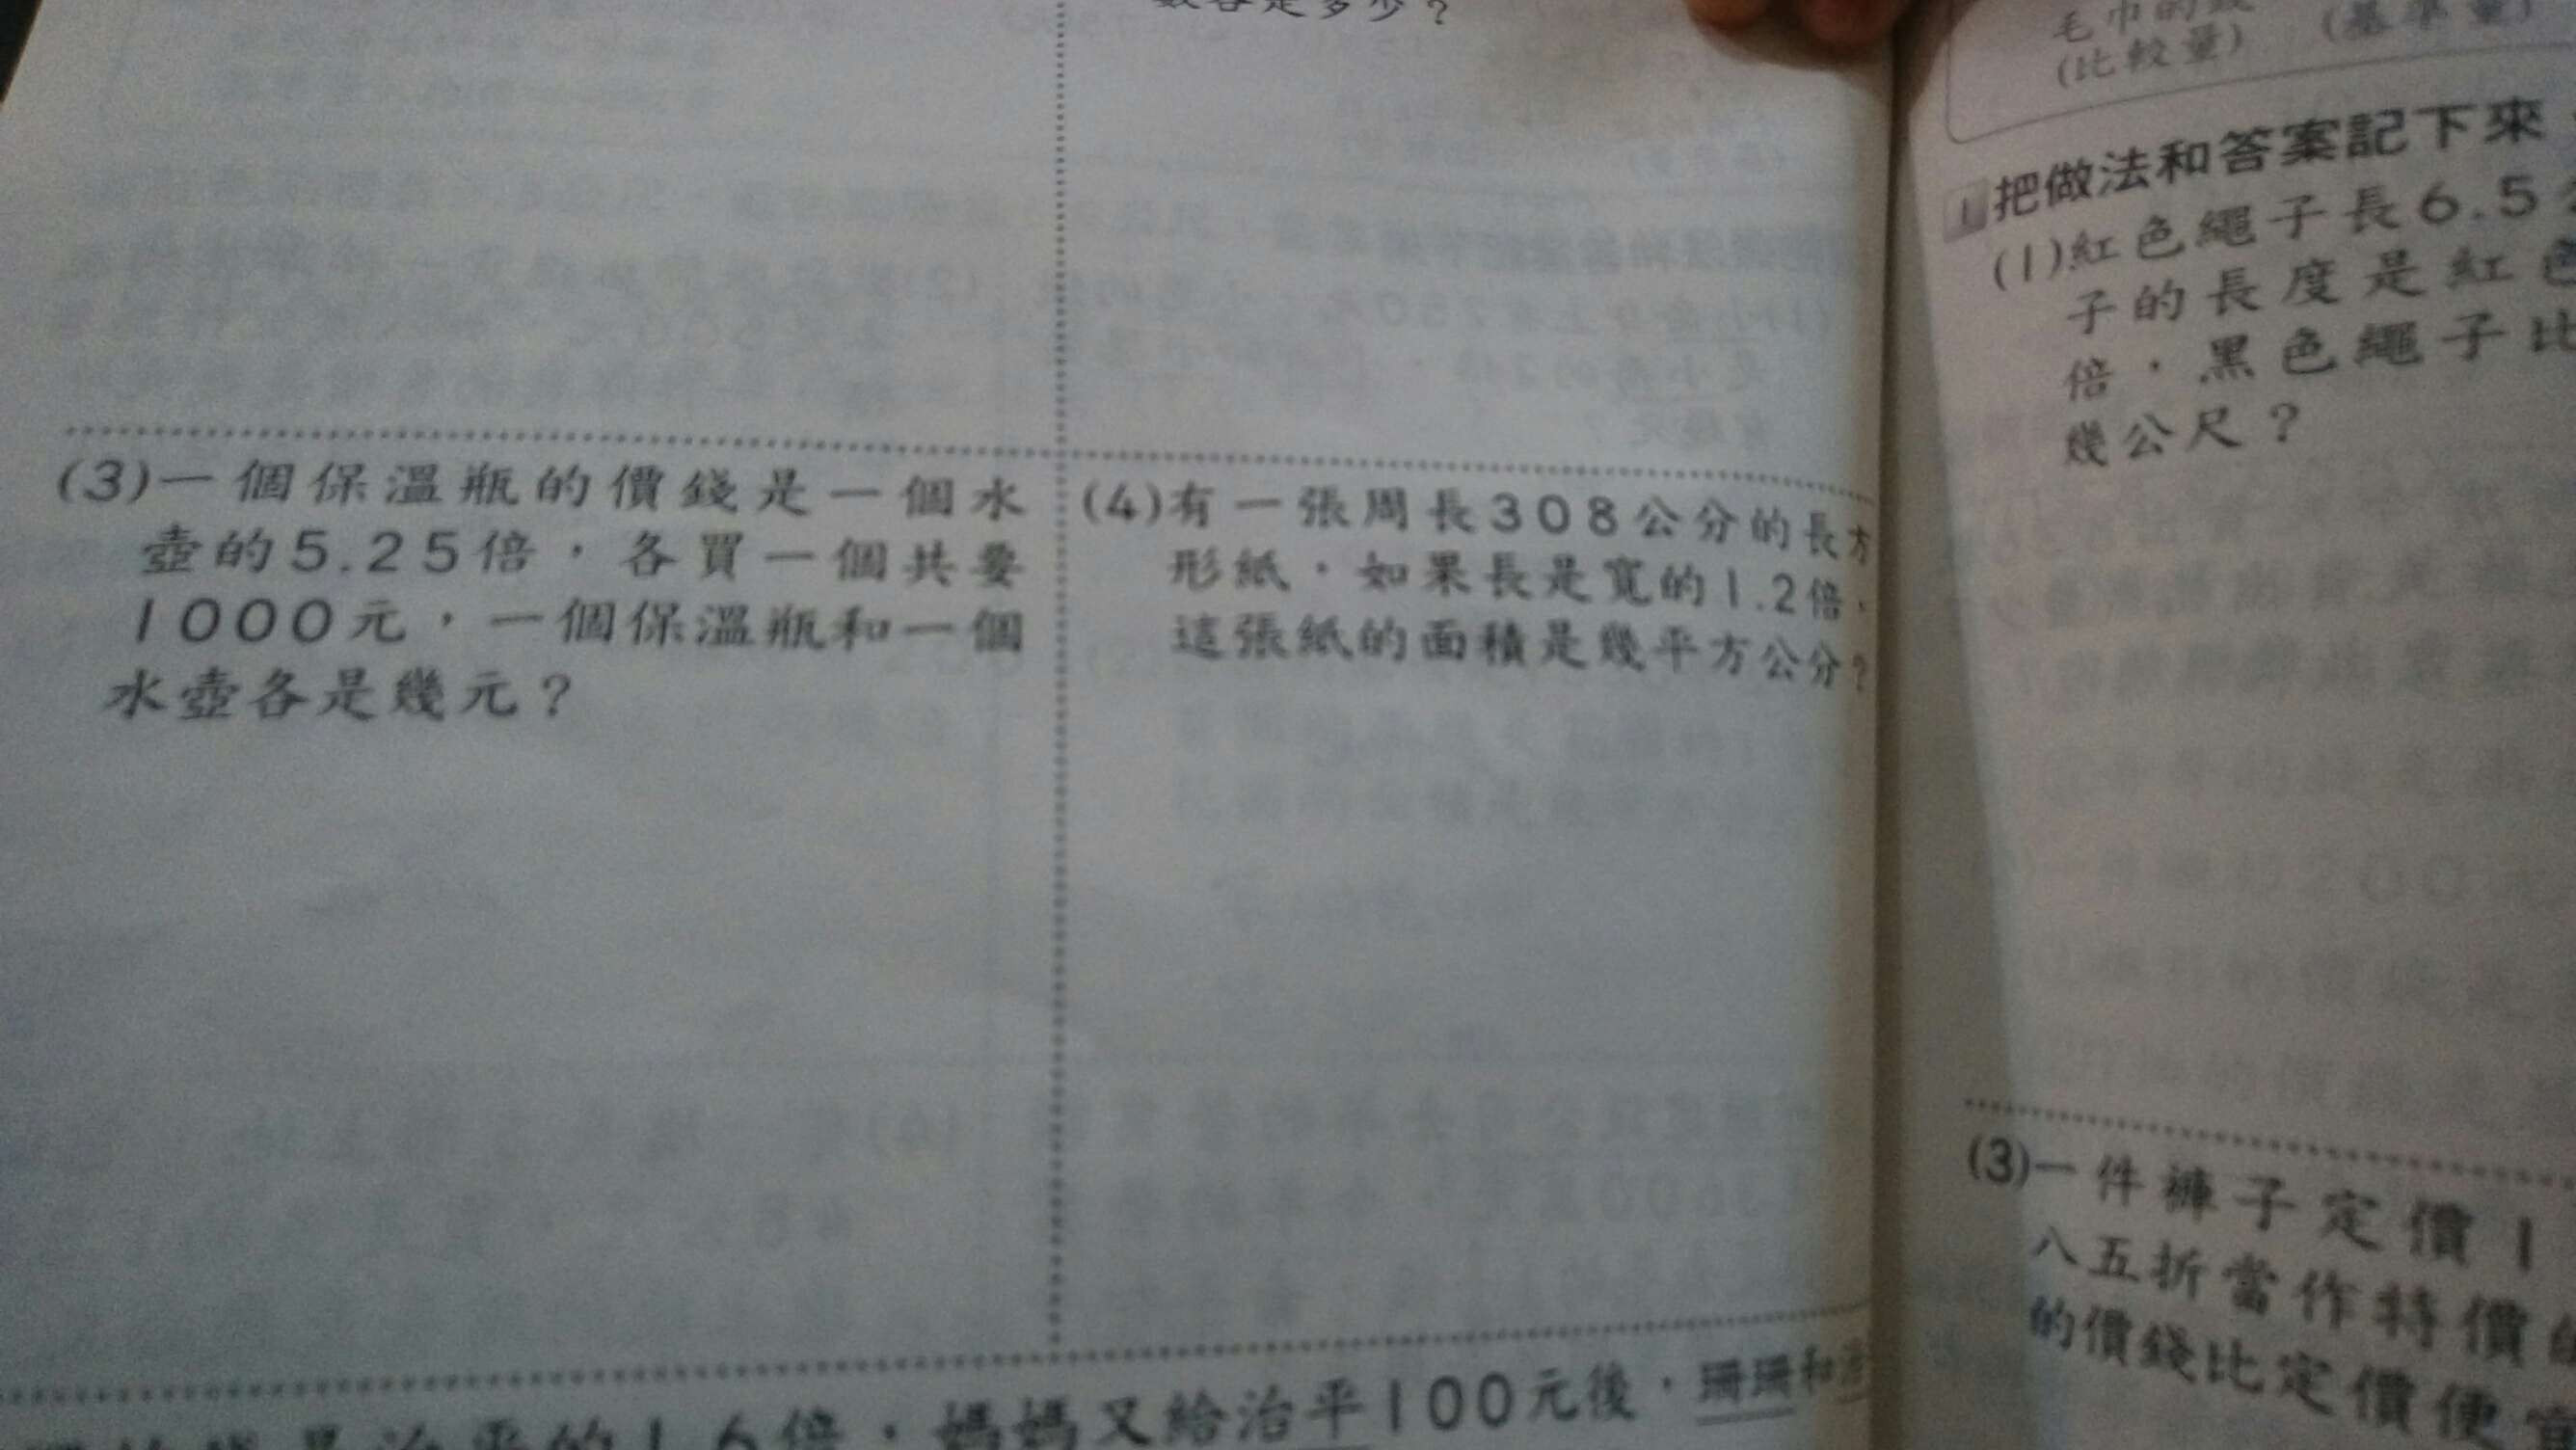 是多少?
(3)一個保溫瓶的價錢是一個水
壺的5.25倍,各買一個共要
1000元,一個保溫瓶和一個
水壺各是幾元?
(4)有一張周長308公分的長方
形紙,如果長是寬的1.2倍,
這張紙的面積是幾平方公分?
治平的1.6倍,媽媽又給治平100元後,珊珊和
毛巾的
(比較量) (基準量)
1把做法和答案記下來
(1)紅色繩子長6.5
子的長度是紅色
倍,黑色繩子比
幾公尺?
(3)一件褲子定價1
八五折當作特價
的價錢比定價便宜